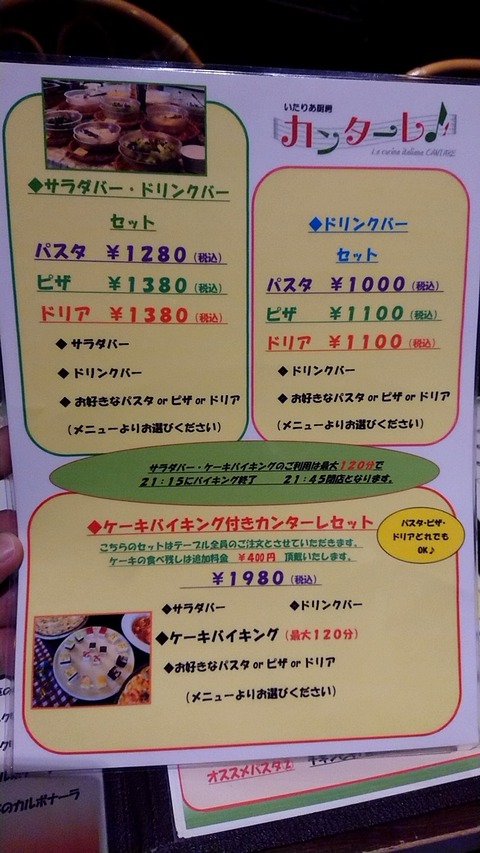 いたりあ厨房
カンターレ
La cucina italiana CANTARE
◆サラダバー・ドリンクバー
セット
パスタ ￥1280(税込)
ピザ ￥1380(税込)
ドリア ￥1380(税込)
◆ サラダバー
◆ ドリンクバー
◆ お好きなパスタ or ピザ or ドリア
(メニューよりお選びください)
◆ドリンクバー
セット
パスタ ￥1000(税込)
ピザ ￥1100(税込)
ドリア ￥1100(税込)
◆ ドリンクバー
◆ お好きなパスタ or ピザ or ドリア
(メニューよりお選びください)
サラダバー・ケーキバイキングのご利用は最大120分で
21:15にバイキング終了 21:45閉店となります。
◆ケーキバイキング付きカンターレセット
こちらのセットはテーブル全員のご注文とさせていただきます。
ケーキの食べ残しは追加料金 ￥400円 頂戴いたします。
パスタ・ピザ・
ドリアどれでも
OK♪
￥1980(税込)
◆サラダバー ◆ドリンクバー
◆ケーキバイキング(最大120分)
◆お好きなパスタ or ピザ or ドリア
(メニューよりお選びください)
オススメパスタ
のカルボナーラ